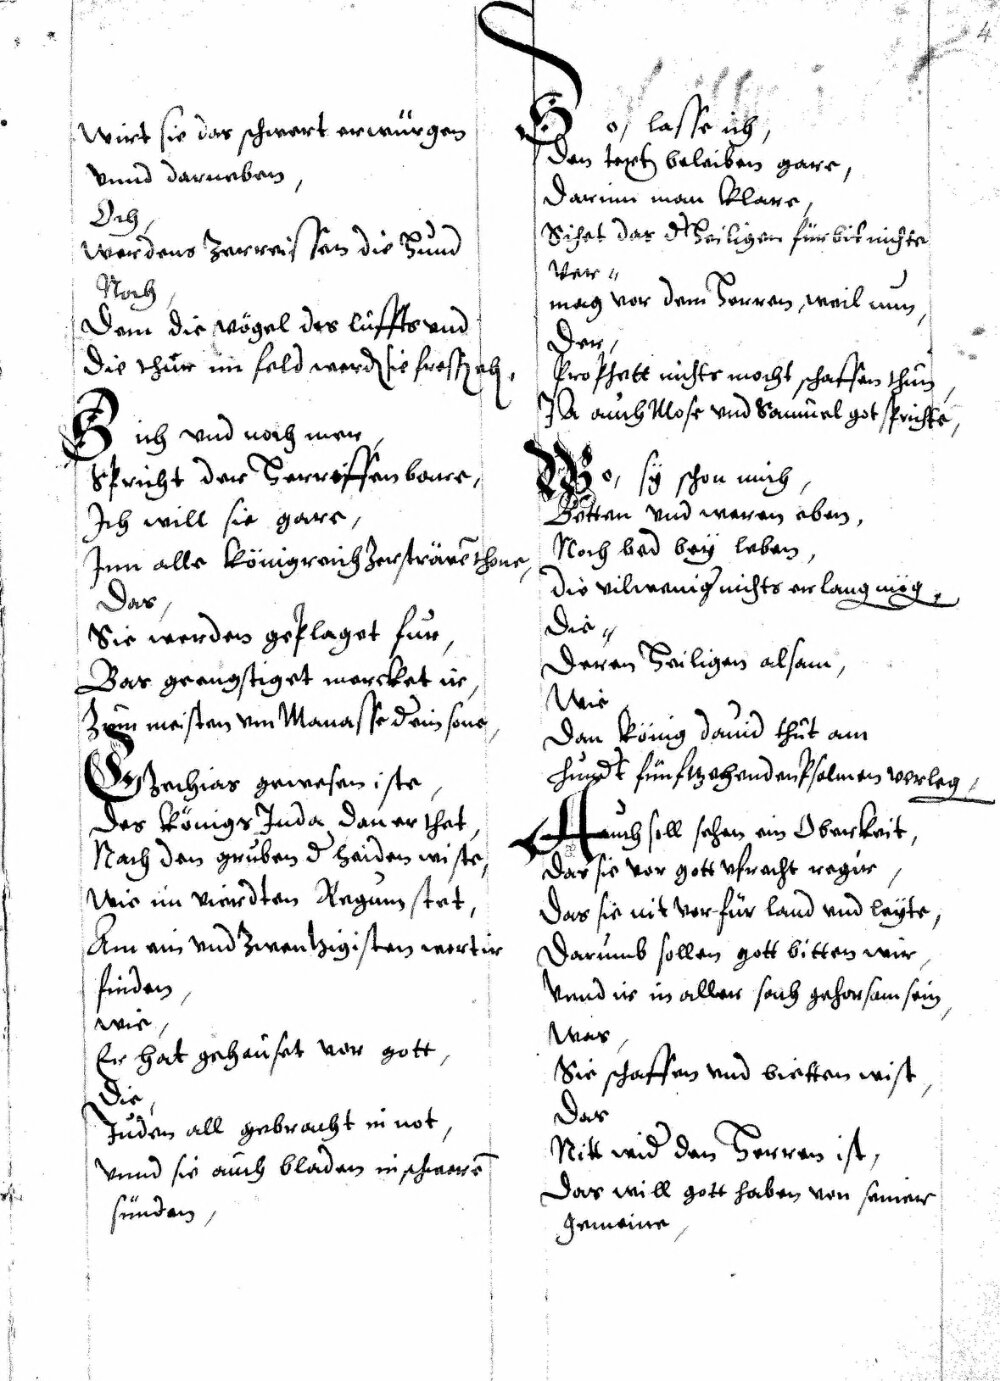 4
Wirt sie das schwert erwürgen
vnnd darneben,
Och,
werdens zerreissen die Hund
Noch,
Dem die vögel des lüffts vnd
die thür im feld werd sie fressen
Sich vnd noch mer,
Spricht der Herr offenbare,
Ich will sie gare,
Inn alle königreich zersträwē thone,
Das,
Sie werden geplaget fur,
Bas geengstiget mercket ir,
Zum meisten von Manasse dein sone,
Ezechias gewesen iste,
Des königs Juda den er thet,
Nach den gruben d heiden wiste,
Wie im vierdten Regum stet,
Am ein vnd zwentzigisten wert ir
finden,
wie,
Er hat gehauset vor gott,
Die,
Juden all gebracht in not,
vnnd sie auch bladen in schwerē
sünden,
So, lasse ich,
Den text beleiben gare,
Darinn man klare,
Sihet das d Heiligen fürbit nichts
ver=
mag vor dem Herren, weil nun,
Der,
Prophett nichts mocht schaffen thun,
Ja auch Mose vnd Samuel got sprichte,
Wo, sy schon mich,
Betten vnd weren eben,
Noch bed bey leben,
die vilwenig nichts erlang mög,
Die=
Deren Heiligen alsam,
Wie
Dan könig dauid thut am
hundt fünfftzehenden Psalmen verleg,
Auch soll sehen ein Oberkeit,
Das sie vor gott vfrecht regir,
Das sie nit verfür land vnd leyte,
Darumb sollen gott bitten wir,
vnnd ir in aller sach gehorsam sein,
Was,
Sie schaffen vnd bietten wist,
Das
Nitt wid den Herren ist,
Das will gott haben von seiner
gemeine,